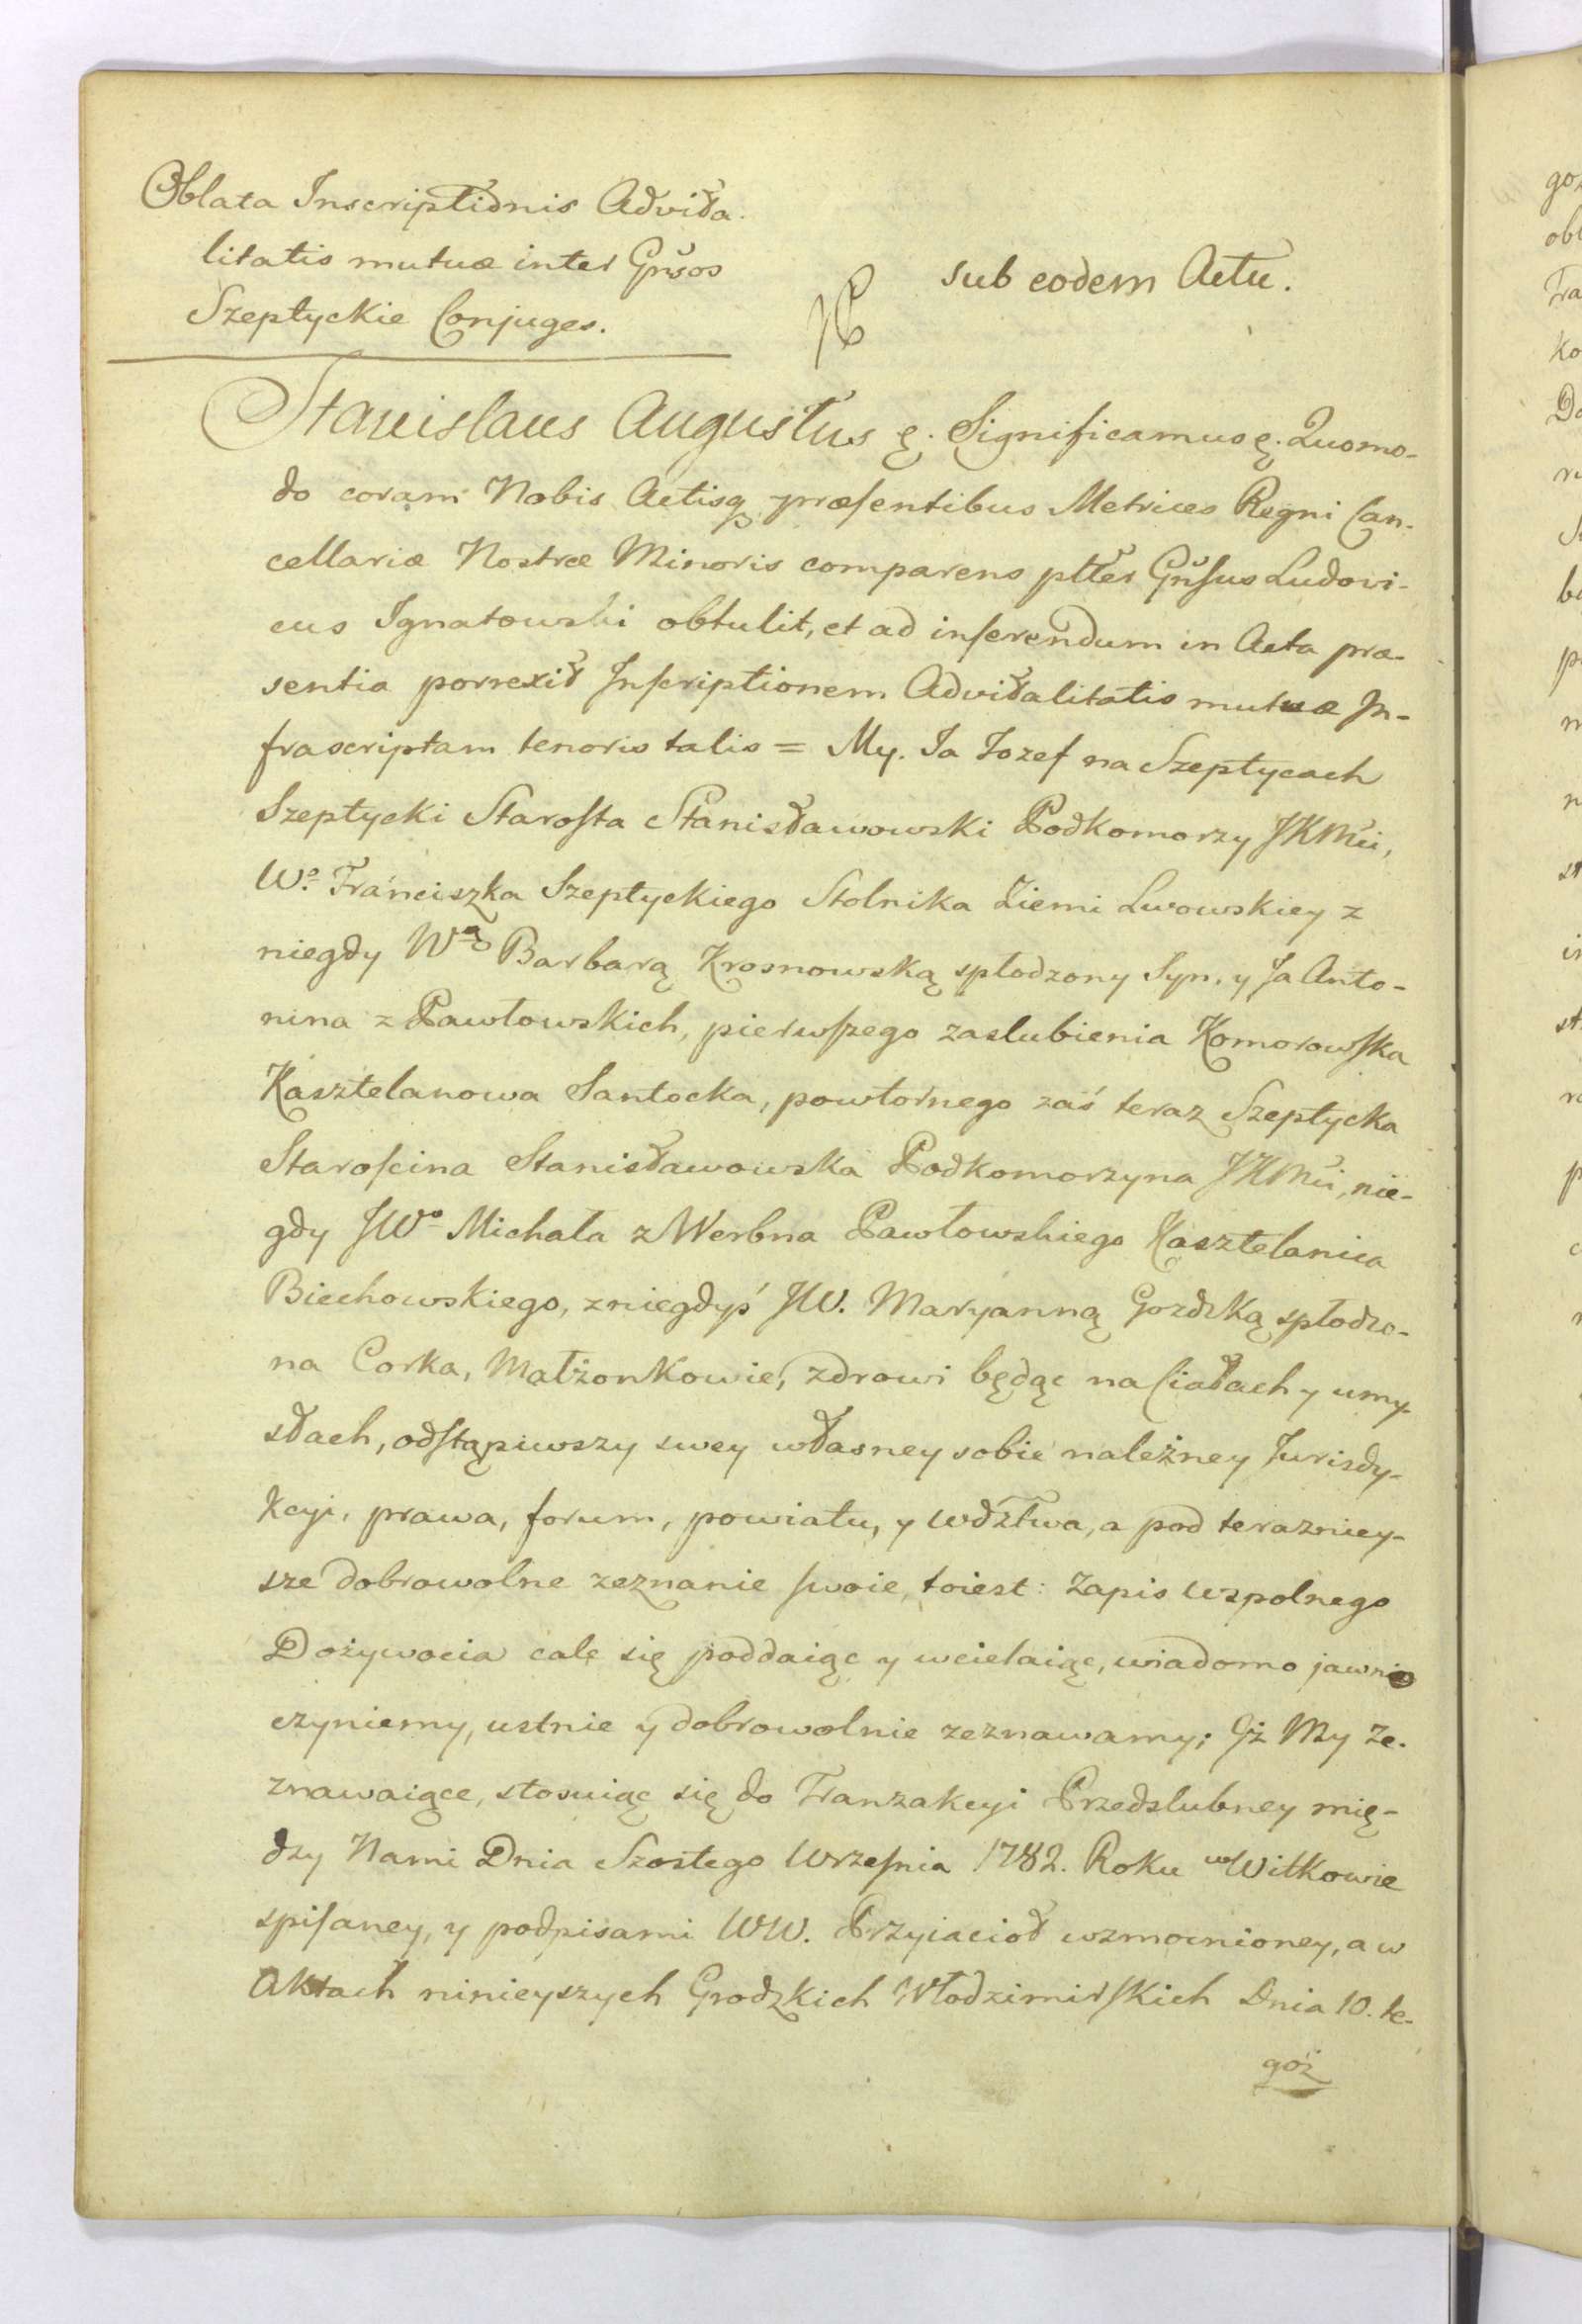 Oblata Inscriptionis Advita-
litatis mutuæ inter Gnsos
Szeptyckie Conjuges.
sub eodem Actu.
Stanislaus Augustus ę. Significamus ę. Quomo-
do coram Nobis Actisq præsentibus Metrices Regni Can-
cellariæ Nostræ Minoris comparens pltes Gnsus Ludovi-
cus Ignatowski obtulit, et ad inserendum in Acta præ-
sentia porrexit Inscriptionem Advitalitatis mutuæ In-
frascriptam tenoris talis = My. Ja Jozef na Szeptycach
Szeptycki Starosta Stanisławowski Podkomorzy JKMci,
Wo. Franciszka Szeptyckiego Stolnika Ziemi Lwowskiey z
niegdy Wą Barbarą Krosnowską spłodzony Syn, y Ja Anto-
nina z Pawłowskich, pierwszego zaslubienia Komorowska
Kasztelanowa Santocka, powtornego zaś teraz Szeptycka
Staroscina Stanisławowska Podkomorzyna JKMci, nie-
gdy JWo Michała z Werbna Pawłowskiego Kasztelanica
Biechowskiego, z niegdyś JW. Maryanną Gozdzką spłodzo-
na Corka, Małżonkowie, zdrowi będąc na Ciałach y umy-
słach, odstąpiwszy swey własney sobie należney Jurisdy-
kcyi, prawa, forum, powiatu, y wdztwa, a pod terazniey-
sze dobrowolne zeznanie swoie, toiest: Zapis wspolnego
Dożywocia cale się poddaiąc y wcielaiąc, wiadomo jawnie
czyniemy, ustnie y dobrowolnie zeznawamy; Iż My Ze-
znawaiące, stosuiąc się do Tranzakcyi Przedslubney mię-
dzy Nami Dnia Szostego Wrzesnia 1782. Roku w Witkowie
spisaney, y podpisami WW. Przyiacioł wzmocnioney, a w
Aktach ninieyszych Grodzkich Włodzimirskich Dnia 10. te-
goż